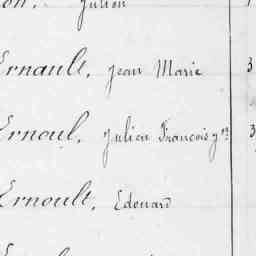 Julien
Ernault, Jean Marie 3
Ernoul, Julien François yes 3
Ernoult, Edouard